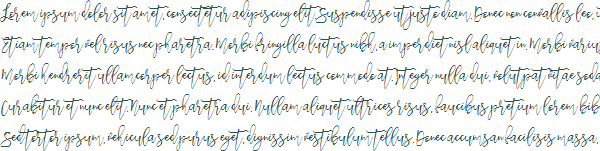 Lorem ipsum dolor sit amet, consectetur adipiscing elit. Suspendisse ut justo diam. Donec non convallis leo, i
Etiam tempor vel risus nec pharetra. Morbi fringilla luctus nibh, a imperdiet nisl aliquet in. Morbi varius
Morbi hendrerit ullamcorper lectus, id interdum lectus commodo at. Integer nulla dui, volutpat vitae soda
Curabitur et nunc elit. Nunc et pharetra dui. Nullam aliquet ultrices risus, faucibus pretium lorem bib
Sed tortor ipsum, vehicula sed purus eget, dignissim vestibulum tellus. Donec accumsan facilisis massa,